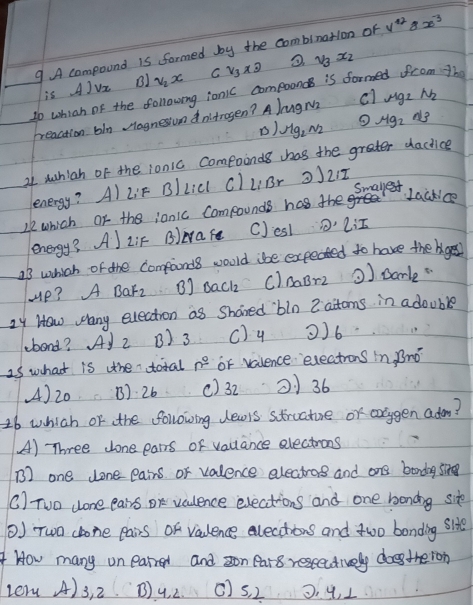 9 A compound is formed by the combination of V⁺² & x⁻³
is A) Vx B) V₂x C V₃x2 D. V₃ x₂
20 which of the following ionic compoonds is formed from the
reaction b/n Magnesium d nitrogen? A) MgN2 C) Mg2 N2
B) Mg2N2 D Mg2 N3
21 which of the ionic compoonds has the greter dactice
energy? A) LiF B) LiCl C) LiBr D) LiI
Smalest
22 which of the ionic compounds has the lactice
energy? A) LiF B) C) csl D. LiI
23 which of the compounds would be expected to have the higest
MP? A BaF2 B) BaCl2 C) BaBr2 D)
24 How many electron as shared b/n 2 atoms in a double
bond? A) 2 B) 3 C) 4 D) 6
25 what is the total nº of valence electrons in
A) 20 B) 26 C) 32 D) 36
26 which of the following Lewis structure of oxygen atom?
A) Three lone pairs of vallance electrons
B) one lone pairs of valence electrons and one bonding site
C) Two lone pairs of valence electrons and one bonding site
D) Two lone pairs of valence electrons and two bonding site
7 How many un paired and pars respectively does the ion
A) 3,2 B) 4,2 C) 5,2 D. 4,1